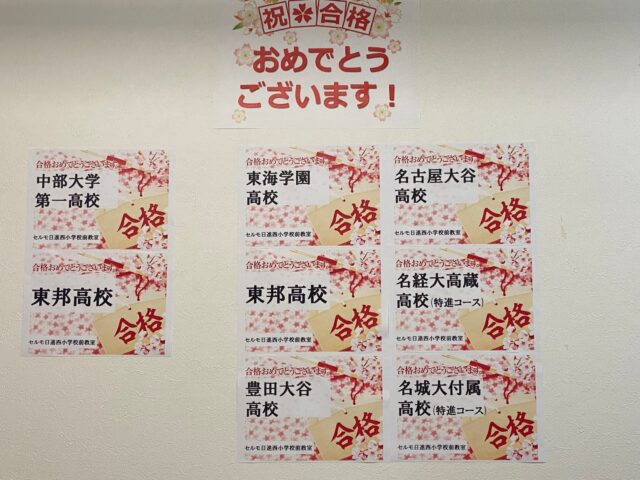 祝合格
おめでとう
ございます！
合格おめでとうございます
中部大学
第一高校
合格
セルモ日進西小学校前教室
合格おめでとうございます
東邦高校
合格
セルモ日進西小学校前教室
合格おめでとうございます
東海学園
高校
合格
セルモ日進西小学校前教室
合格おめでとうございます
東邦高校
合格
セルモ日進西小学校前教室
合格おめでとうございます
豊田大谷
高校
合格
セルモ日進西小学校前教室
合格おめでとうございます
名古屋大谷
高校
合格
セルモ日進西小学校前教室
合格おめでとうございます
名経大高蔵
高校(特進コース)
合格
セルモ日進西小学校前教室
合格おめでとうございます
名城大付属
高校(特進コース)
合格
セルモ日進西小学校前教室